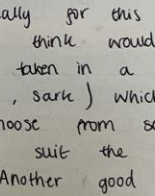 ally for this
think would
taken in a
, sark ) which
hoose from so
suit the
Another good